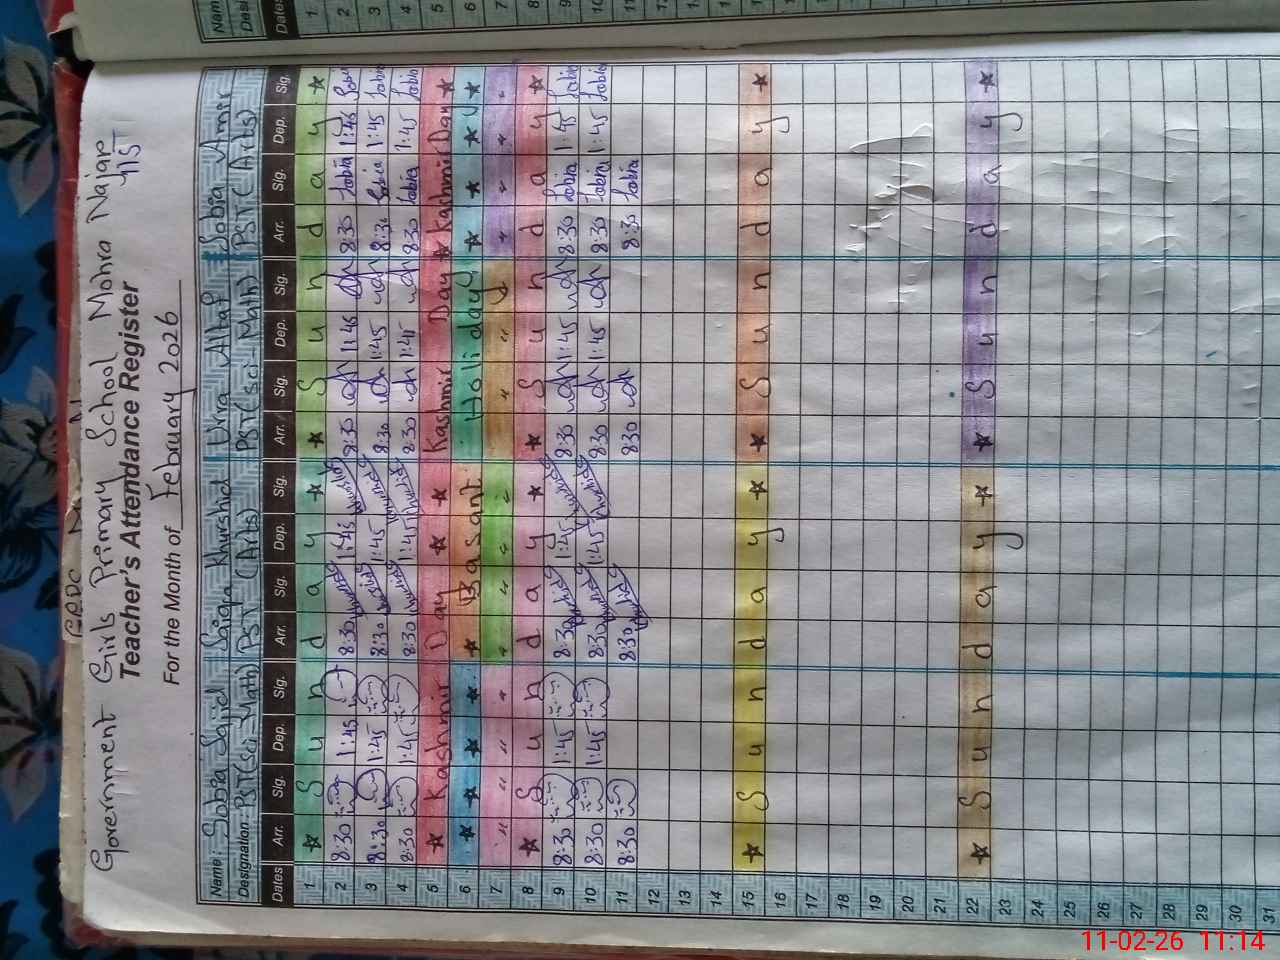 Government Girls Primary School Mohra Najar
Teacher's Attendance Register
For the Month of February 2026
Name: Sobba Sajid Saiqa Khurshid Uhra Altaf Sobia Amir
Designation: PST (Sci-Math) PST (Arts) PST (Sci-Math) PST (Arts)
Dates Arr. Sig. Dep. Sig. Arr. Sig. Dep. Sig. Arr. Sig. Dep. Sig. Arr. Sig. Dep. Sig.
1 Sunday Sunday
2 8:30 1:45 8:30 1:45 8:30 1:45 8:30 Sobia 1:45
3 8:30 1:45 8:30 1:45 8:30 1:45 8:30 Sobia 1:45 Sobia
4 8:30 1:45 8:30 1:45 8:30 1:45 8:30 Sobia 1:45 Sobia
5 Kashmir Day Kashmir Day Kashmir Day
6 Basant Holiday
7 " " " " " "
8 Sunday Sunday
9 8:30 1:45 8:30 1:45 8:30 1:45 8:30 Sobia 1:45 Sobia
10 8:30 1:45 8:30 1:45 8:30 1:45 8:30 Sobia 1:45 Sobia
11 8:30 8:30 8:30 8:30 Sobia
12
13
14
15 Sunday Sunday
16
17
18
19
20
21
22 Sunday Sunday
23
24
25
26
27
28
29
30
31
11-02-26 11:14